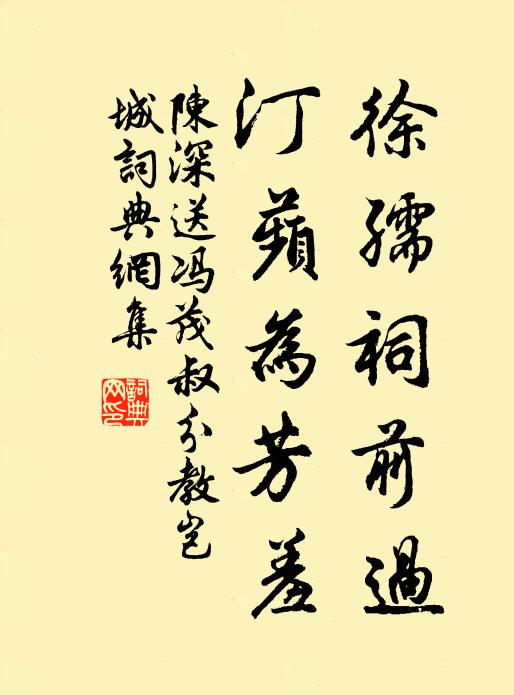 徐孺祠前過
汀蘋為芳羞
陳深送冯茂叔分教豈
城詞典網集
詞典
网印